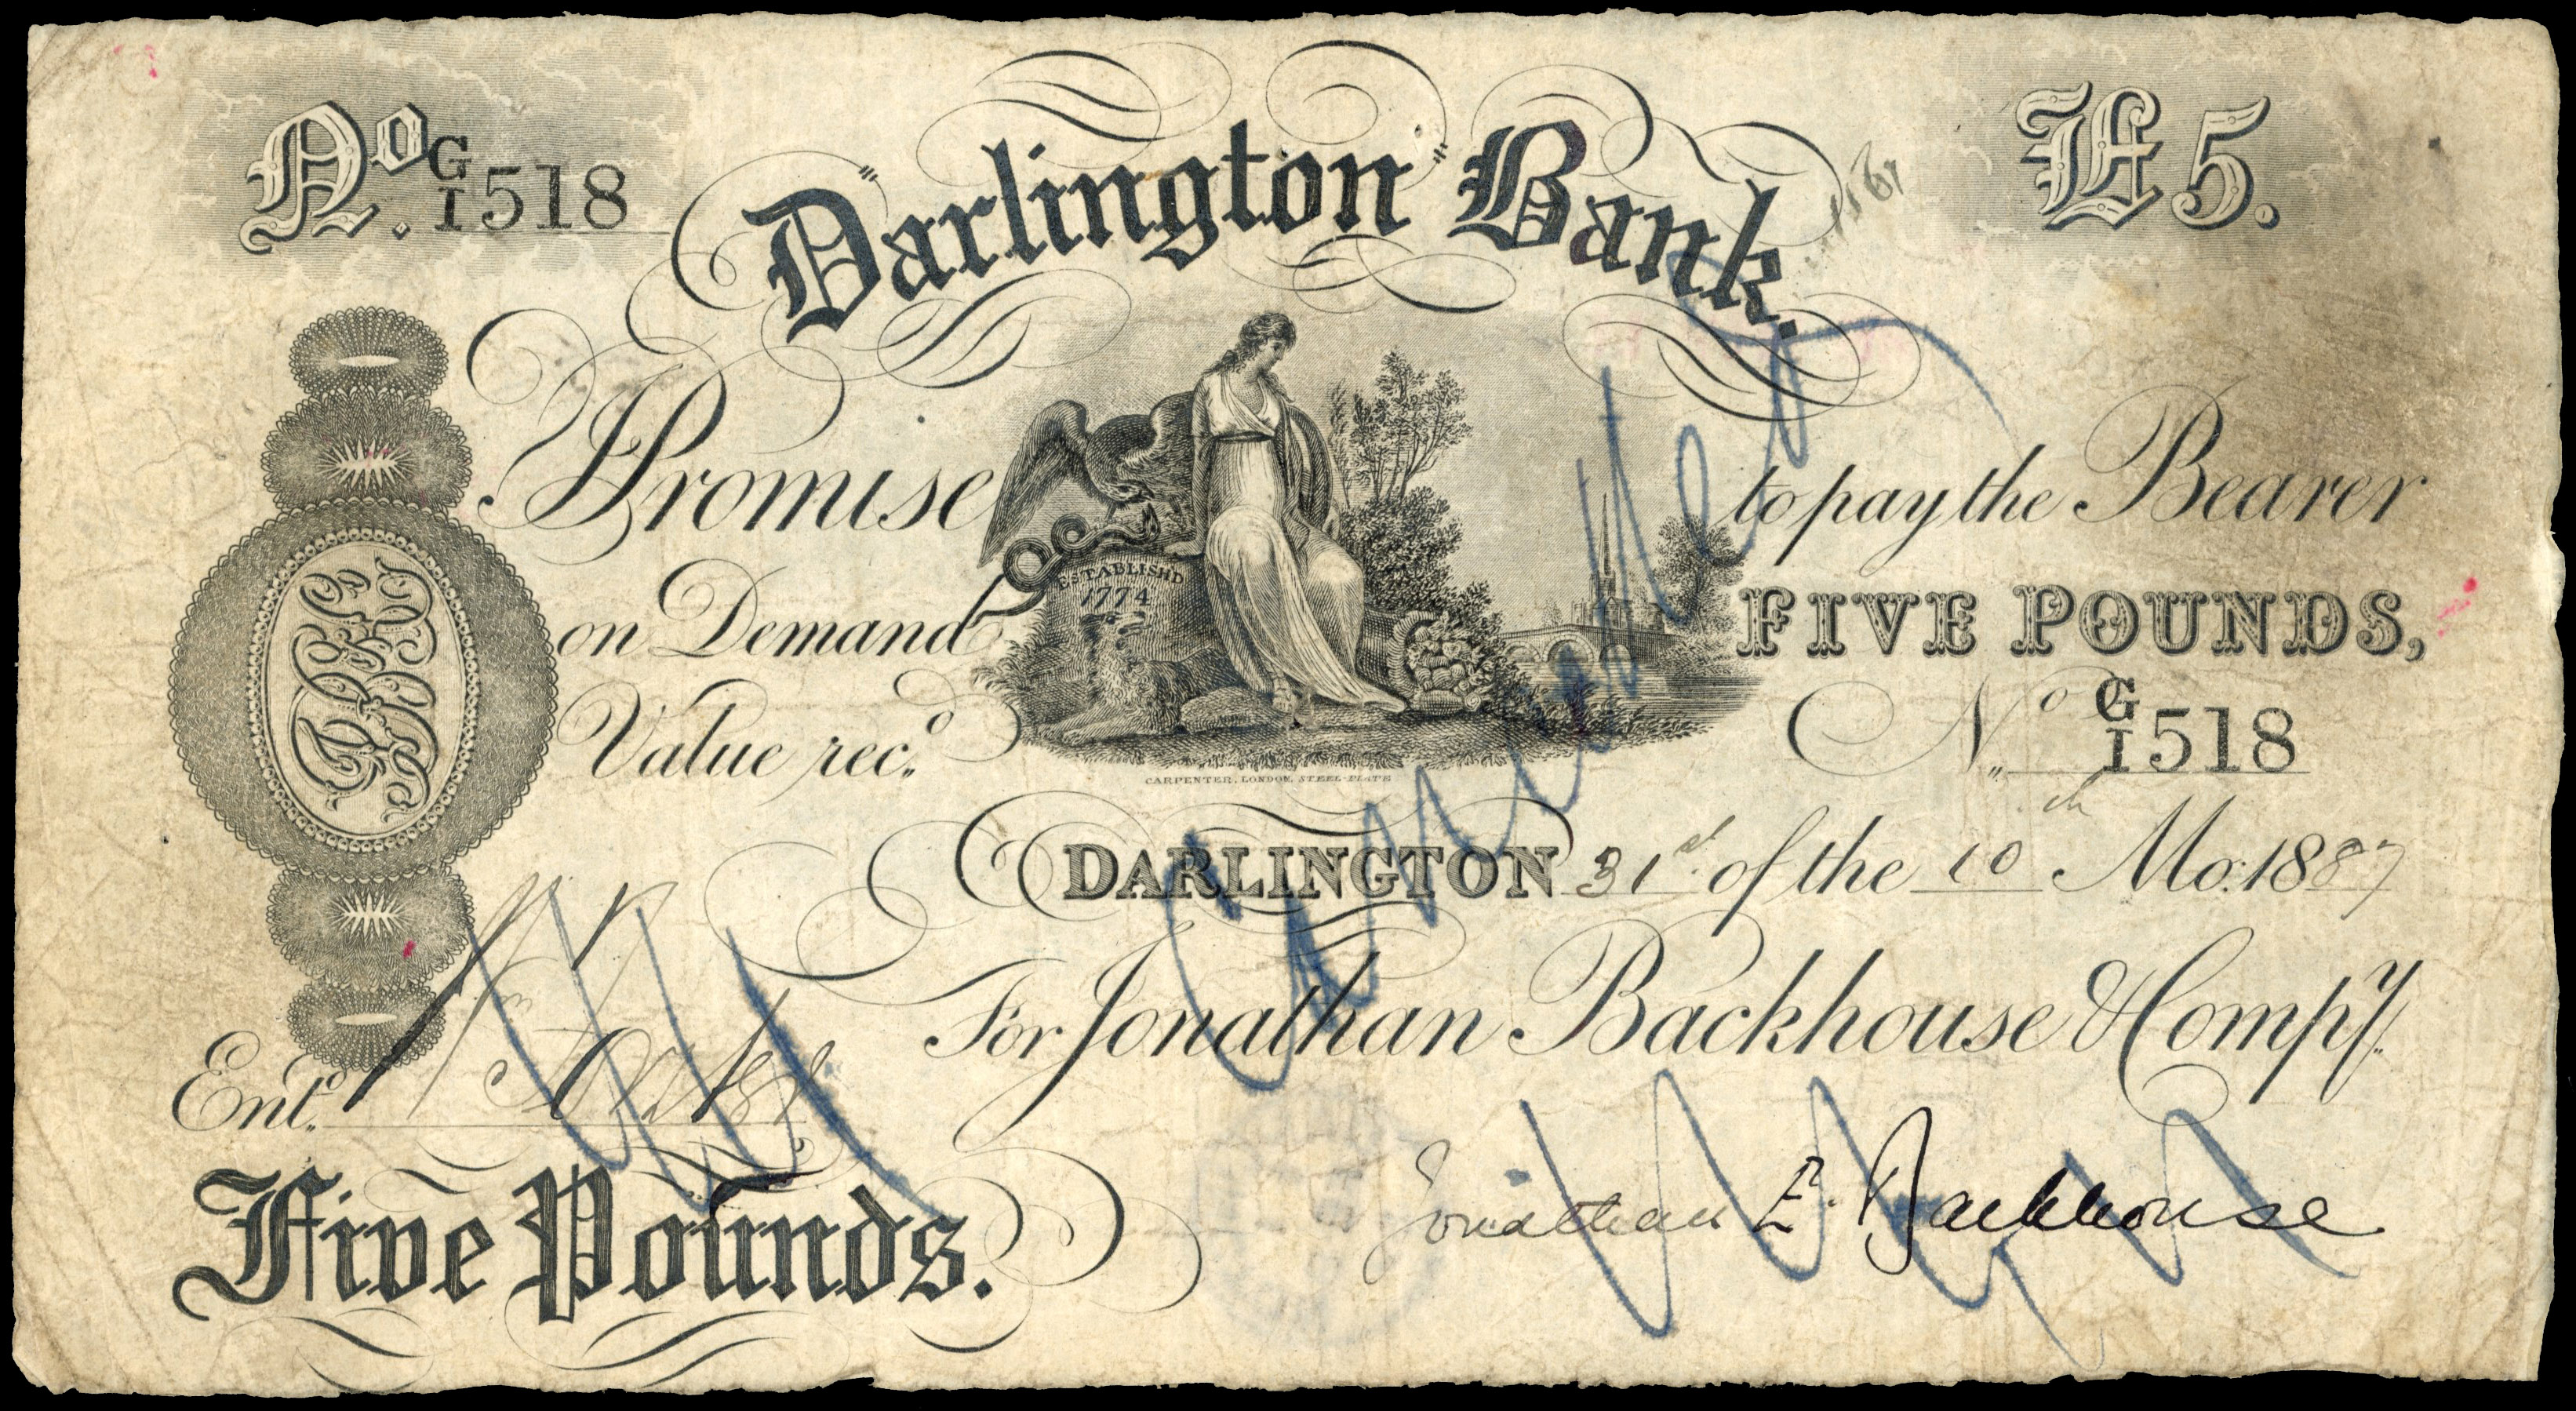 No. G/1 518
Darlington Bank.
£5.
I Promise to pay the Bearer
on Demand FIVE POUNDS,
ESTABLISHD
1774
Value rec.d
No. G/1 518
CARPENTER, LONDON. STEEL-PLATE
DARLINGTON 31st of the 10th Mo. 1887
For Jonathan Backhouse & Compy.
Ent.d
Jonathan E. Backhouse
Five Pounds.
Cancelled